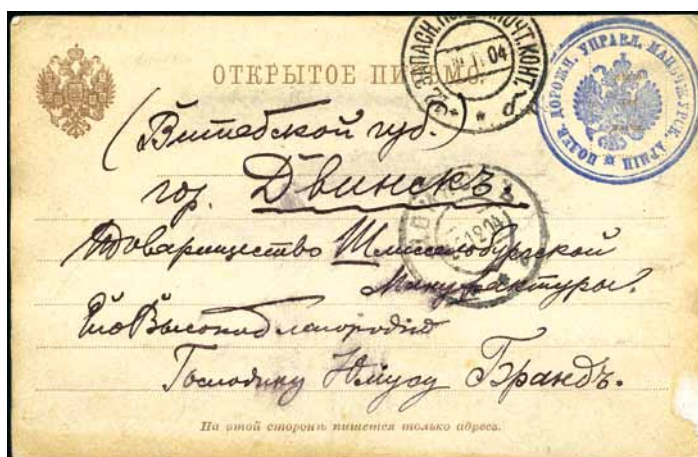 ОТКРЫТОЕ ПИСЬМО.
ЗАПАСН. ПОЛЕВ. ПОЧТ. КОНТ-Р.
04
ПОЛЕВ. ДОРОЖН. УПРАВЛ. МАНЧЖУРСК. АРМІИ
(Витебской губ.)
гор. Двинскъ.
Товарищество Шлиссельбургской
Мануфактуры.
Его Высокоблагородію
Господину Брандъ.
На этой сторонѣ пишется только адресъ.